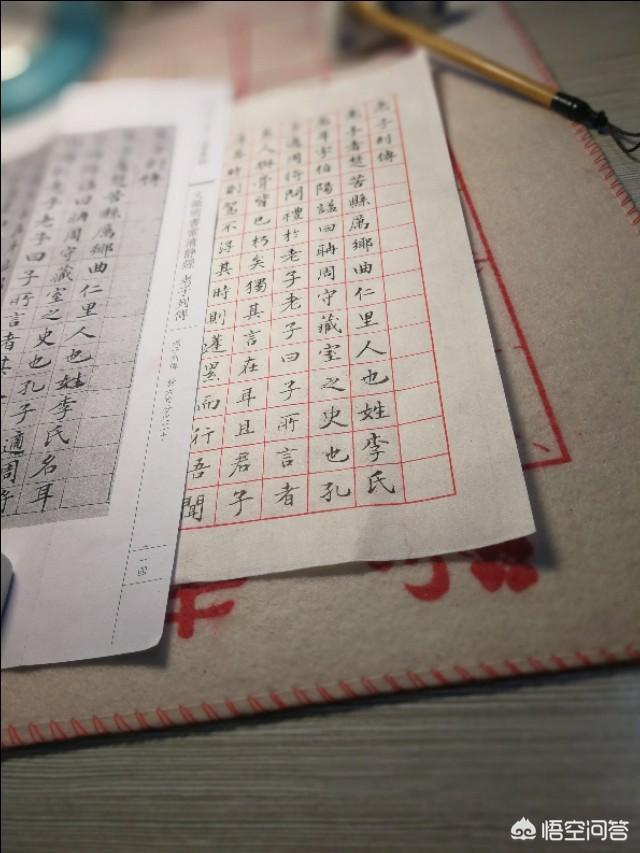 老子列傳
老子者楚苦縣厲鄉曲仁里人也姓李氏
名耳字伯陽謚曰聃周守藏室之史也孔
子適周將問禮於老子老子曰子所言者
其人與骨皆已朽矣獨其言在耳且君子
得其時則駕不得其時則蓬累而行吾聞
清靜經 老子列傳
二四
子列傳
苦縣厲鄉曲仁里人也姓李氏名耳
謚曰聃周守藏室之史也孔子適周將
老子老子曰子所言者其
悟空问答